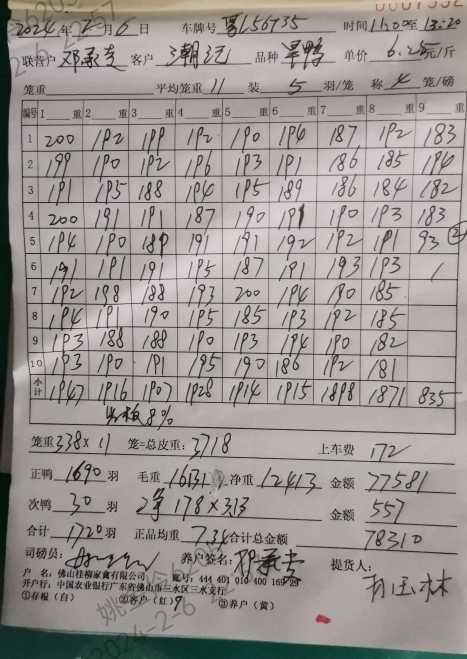 2024年2月6日 车牌号 粤L56735 时间 11:00至13:20
联营户 邓承贵 客户 潮记 品种 旱鸭 单价 6.25元/斤
笼重 平均笼重 11 装 5 羽/笼 称 4 笼/磅
编号 1 重 2 重 3 重 4 重 5 重 6 重 7 重 8 重 9 重
1 200 192 199 192 190 194 187 192 183
2 199 190 192 196 193 191 186 185 194
3 191 195 188 194 195 189 186 184 182
4 200 191 191 187 190 191 190 193 183
5 194 190 189 191 191 192 192 191 93 ②
6 191 191 191 195 187 191 193 193 /
7 192 198 188 193 200 194 190 185
8 194 191 190 195 185 193 192 185
9 193 188 188 190 193 194 190 182
10 193 190 191 195 190 186 192 181
小计 1947 1916 1907 1928 1914 1915 1898 1871 835
8%
笼重 338×11 笼=总皮重: 3718 上车费 172
正鸭 1690 羽 毛重 16131 净重 12413 金额 77581
次鸭 30 羽 净 178×3.13 金额 557
合计 1720 羽 正品均重 7.34 合计总金额 78310
司磅员: 养户签名: 提货人:
户 名: 佛山桂柳家禽有限公司 账号: 444 401 010 400 169 29
开户行: 中国农业银行广东省佛山市三水区三水支行
①存根 (白) ②客户 (红) ③养户 (黄)